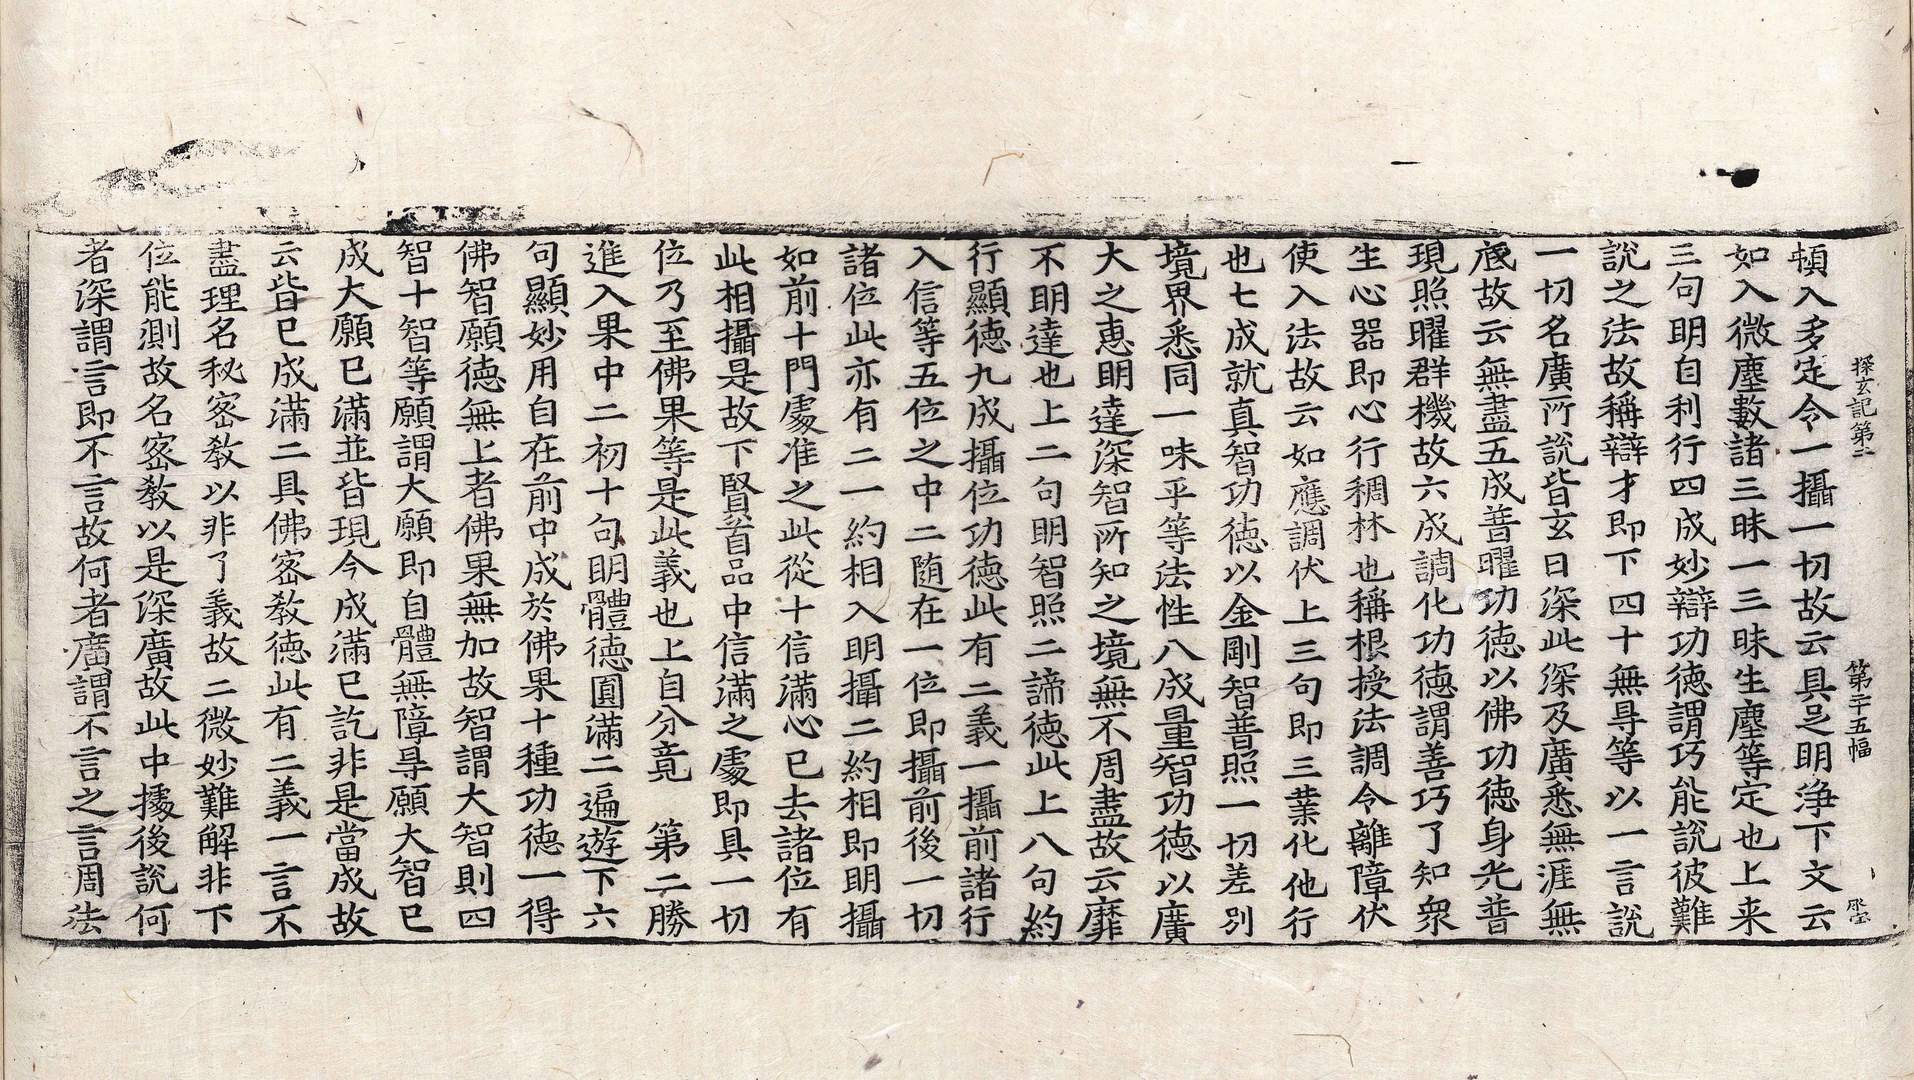 探玄記第三 第三十五幅
頓入多定令一攝一切故云具足明淨下文云
如入微塵數諸三昧一三昧生塵等定也上来
三句明自利行四成妙辯功德謂巧能說彼難
說之法故稱辯才即下四十無导等以一言說
一切名廣所說皆玄曰深此深及廣悉無涯無
底故云無盡五成普曜功德以佛功德身光普
現照曜群機故六成調化功德謂善巧了知衆
生心器即心行稠林也稱根授法調令離障伏
使入法故云如應調伏上三句即三業化他行
也七成就真智功德以金剛智普照一切差別
境界悉同一味平等法性八成量智功德以廣
大之惠明達深智所知之境無不周盡故云靡
不明達也上二句明智照二諦德此上八句約
行顯德九成攝位功德此有二義一攝前諸行
入信等五位之中二随在一位即攝前後一切
諸位此亦有二一約相入明攝二約相即明攝
如前十門處准之此從十信滿心已去諸位有
此相攝是故下賢首品中信滿之處即具一切
位乃至佛果等是此義也上自分竟　第二勝
進入果中二初十句明體德圓滿二遍遊下六
句顯妙用自在前中成於佛果十種功德一得
佛智願德無上者佛果無加故智謂大智則四
智十智等願謂大願即自體無障导願大智已
成大願已滿並皆現今成滿已訖非是當成故
云皆已成滿二具佛密教德此有二義一言不
盡理名秘密教以非了義故二微妙難解非下
位能測故名密教以是深廣故此中據後說何
者深謂言即不言故何者廣謂不言之言周法